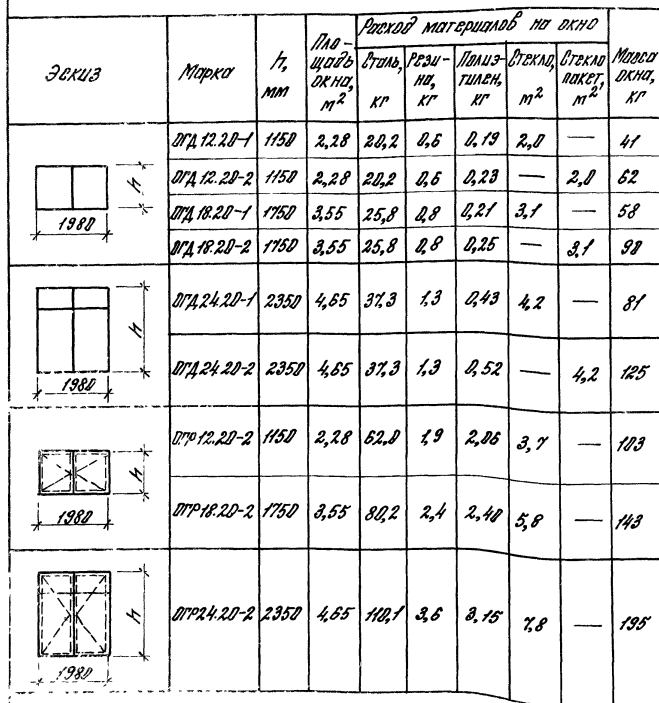 Эскиз Марка h, мм Пло-щадь окна, м² Расход материалов на окно Масса окна, кг
Сталь, кг Рези-на, кг Полиэ-тилен, кг Стекло, м² Стекло пакет, м²
ОГД 12.20-1 1150 2,28 20,2 0,6 0,19 2,0 — 41
ОГД 12.20-2 1150 2,28 20,2 0,6 0,23 — 2,0 62
ОГД 18.20-1 1750 3,55 25,8 0,8 0,21 3,1 — 58
ОГД 18.20-2 1750 3,55 25,8 0,8 0,25 — 3,1 90
h
1980
ОГД 24.20-1 2350 4,65 37,3 1,3 0,43 4,2 — 81
ОГД 24.20-2 2350 4,65 37,3 1,3 0,52 — 4,2 125
h
1980
ОГР 12.20-2 1150 2,28 62,0 1,9 2,06 3,7 — 103
ОГР 18.20-2 1750 3,55 80,2 2,4 2,40 5,8 — 143
h
1980
ОГР 24.20-2 2350 4,65 110,1 3,6 3,15 7,8 — 195
h
1980